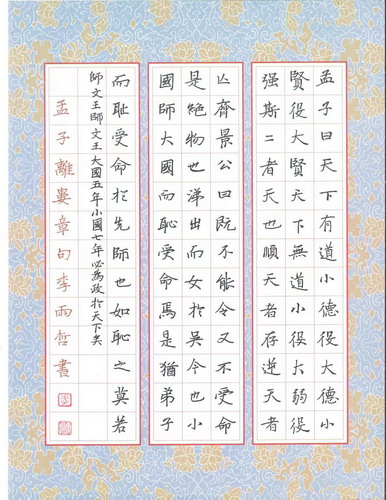 孟子曰天下有道小德役大德小
賢役大賢天下無道小役大弱役
强斯二者天也順天者存逆天者
亾齊景公曰既不能令又不受命
是絕物也涕出而女於吳今也小
國師大國而恥受命焉是猶弟子
而恥受命於先師也如恥之莫若
師文王師文王大國五年小國七年必為政於天下矣
孟子離婁章句李雨哲書